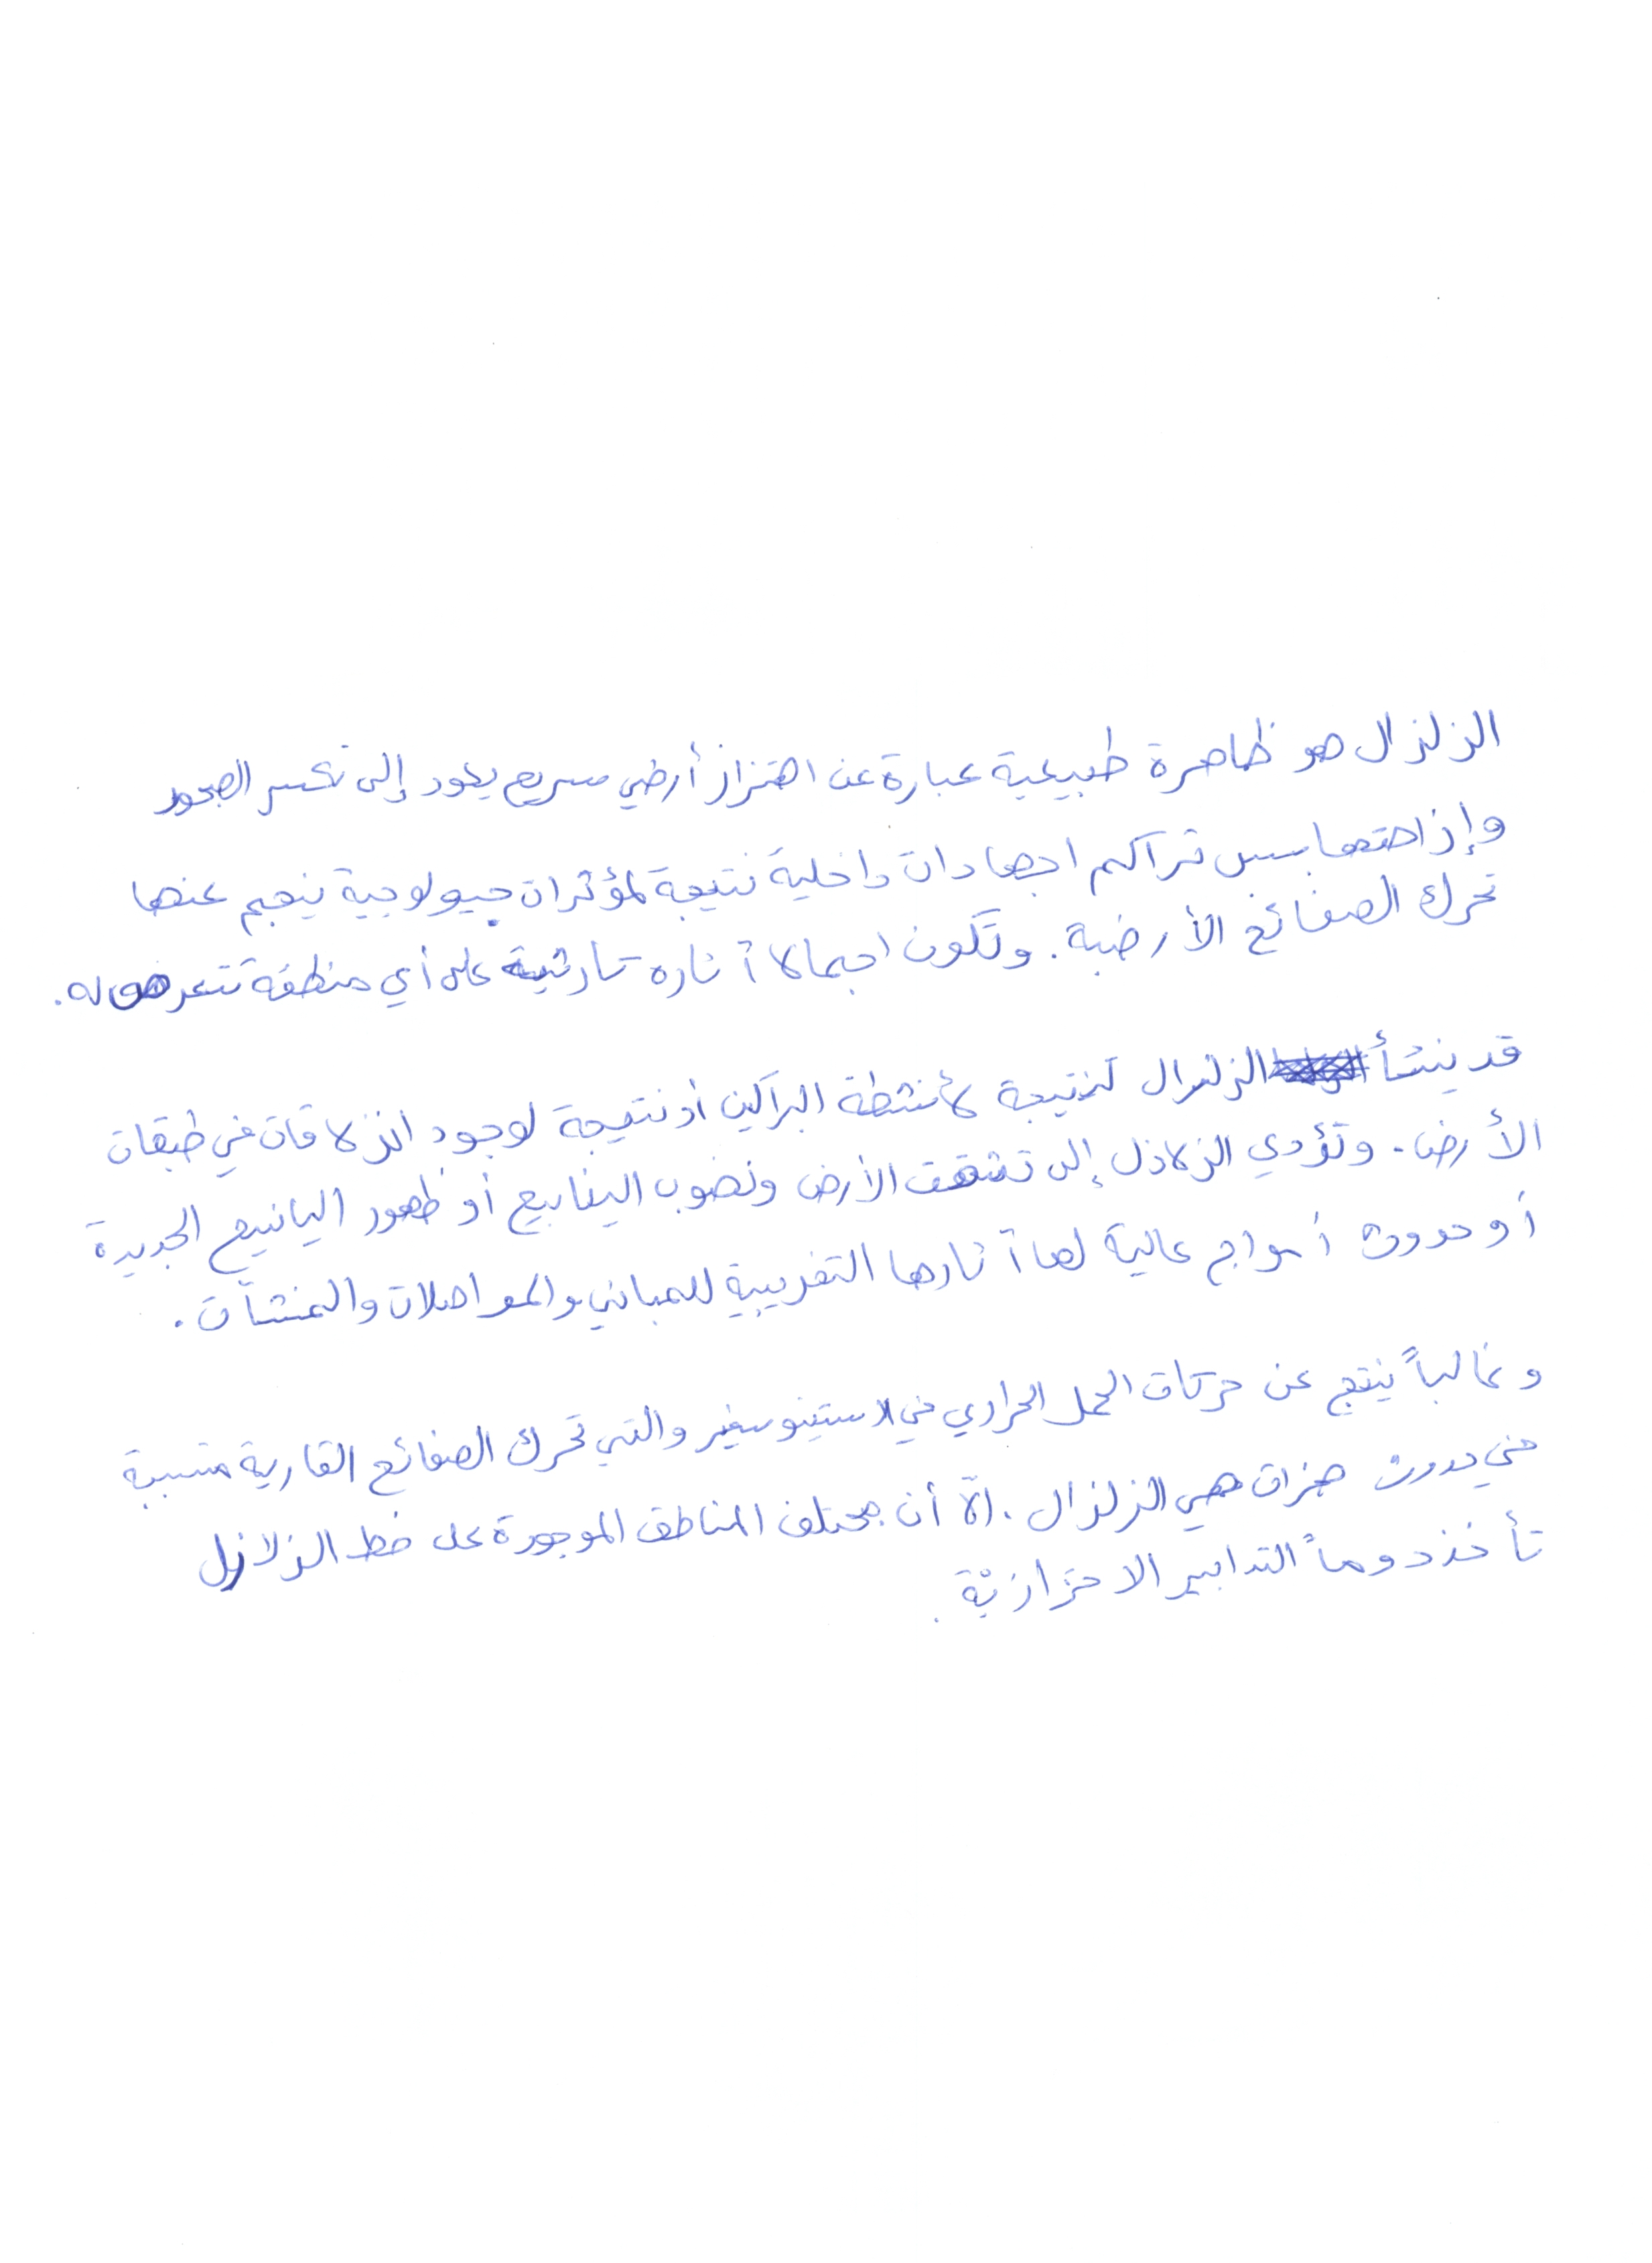 الزلزال هو ظاهرة طبيعية عبارة عن اهتزاز أرضي سريع يعود إلى تكسر الصخور
وإزاحتها بسبب تراكم اجهادات داخلية نتيجة لمؤثرات جيولوجية ينجم عنها
تحرك الصفائح الأرضية. وتكون اجمالا آثاره كارثية على أي منطقة تتعرض له.
قد ينشأ الزلزال كنتيجة لأنشطة البراكين أو نتيجة لوجود انزلاقات في طبقات
الأرض. وتؤدي الزلازل إلى تشقق الأرض ونضوب الينابيع أو ظهور اليانبيع الجديدة
أو حدوث أمواج عالية لها آثارها التخريبية للمباني والمواصلات والمنشآت.
وغالباً ينتج عن حركات الحمل الحراري في الاستينوسفير والتي تحرك الصفائح القارية متسببة
في حدوث هزات هي الزلزال. الّا أن مختلف المناطق الموجودة على خط الزلازل
تأخذ دوماً التدابير الاحترازيّة.